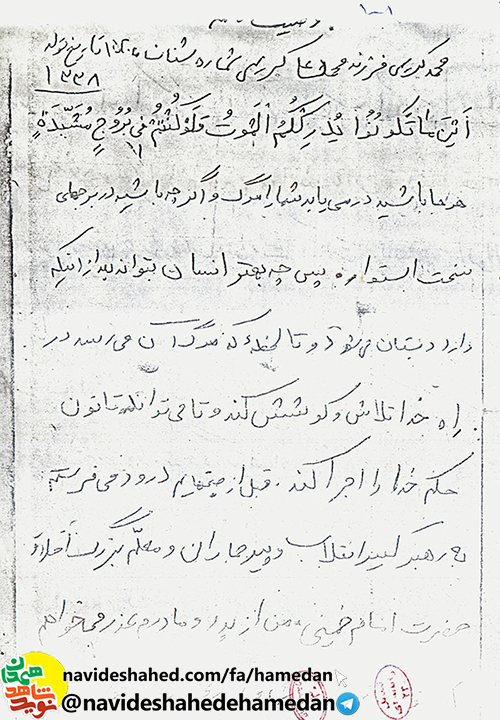 ۱-۱
وصیت نامه
محمد کریمی فرزند محمد علی کریمی شماره شناسنامه تاریخ تولد
۱۳۳۸
أَيْنَ مَا تَكُونُوا يُدْرِكْكُمُ الْمَوْتُ وَلَوْ كُنْتُمْ فِي بُرُوجٍ مُشَيَّدَةٍ
هر جا باشید در می یابد شما را مرگ و اگر چه باشید در برجهای
سخت استوار. پس چه بهتر انسان بتواند بعد از اینکه
وارد دبستان می شود و تا لحظه که مرگ آن می رسد در
راه خدا تلاش و کوشش کند و تا می تواند قانون
حکم خدا را اجرا کند. قبل از درود می فرستم
به رهبر کبیر انقلاب و پیر جماران و معلم بزرگ اخلاق
حضرت امام خمینی، من از پدر و مادرم عذر می خواهم
نوید شاهد
همدان
navideshahed.com/fa/hamedan
@navideshahedehamedan